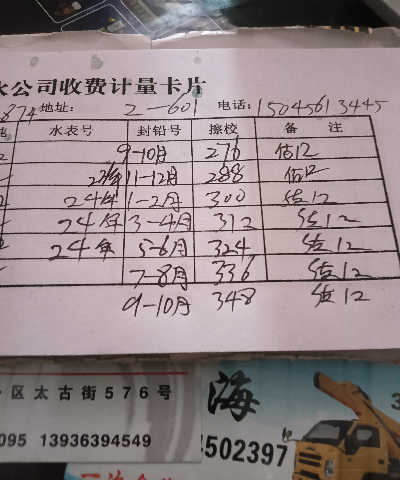 水公司收费计量卡片
874 地址: 2-601 电话: 15045613445
吨 水表号 封铅号 擦校 备 注
9-10月 276 估12
22年 11-12月 288 估12
24年 1-2月 300 估12
24年 3-4月 312 估12
24年 5-6月 324 估12
7-8月 336 估12
9-10月 348 估12
区太古街576号
海
095 13936394549
4502397